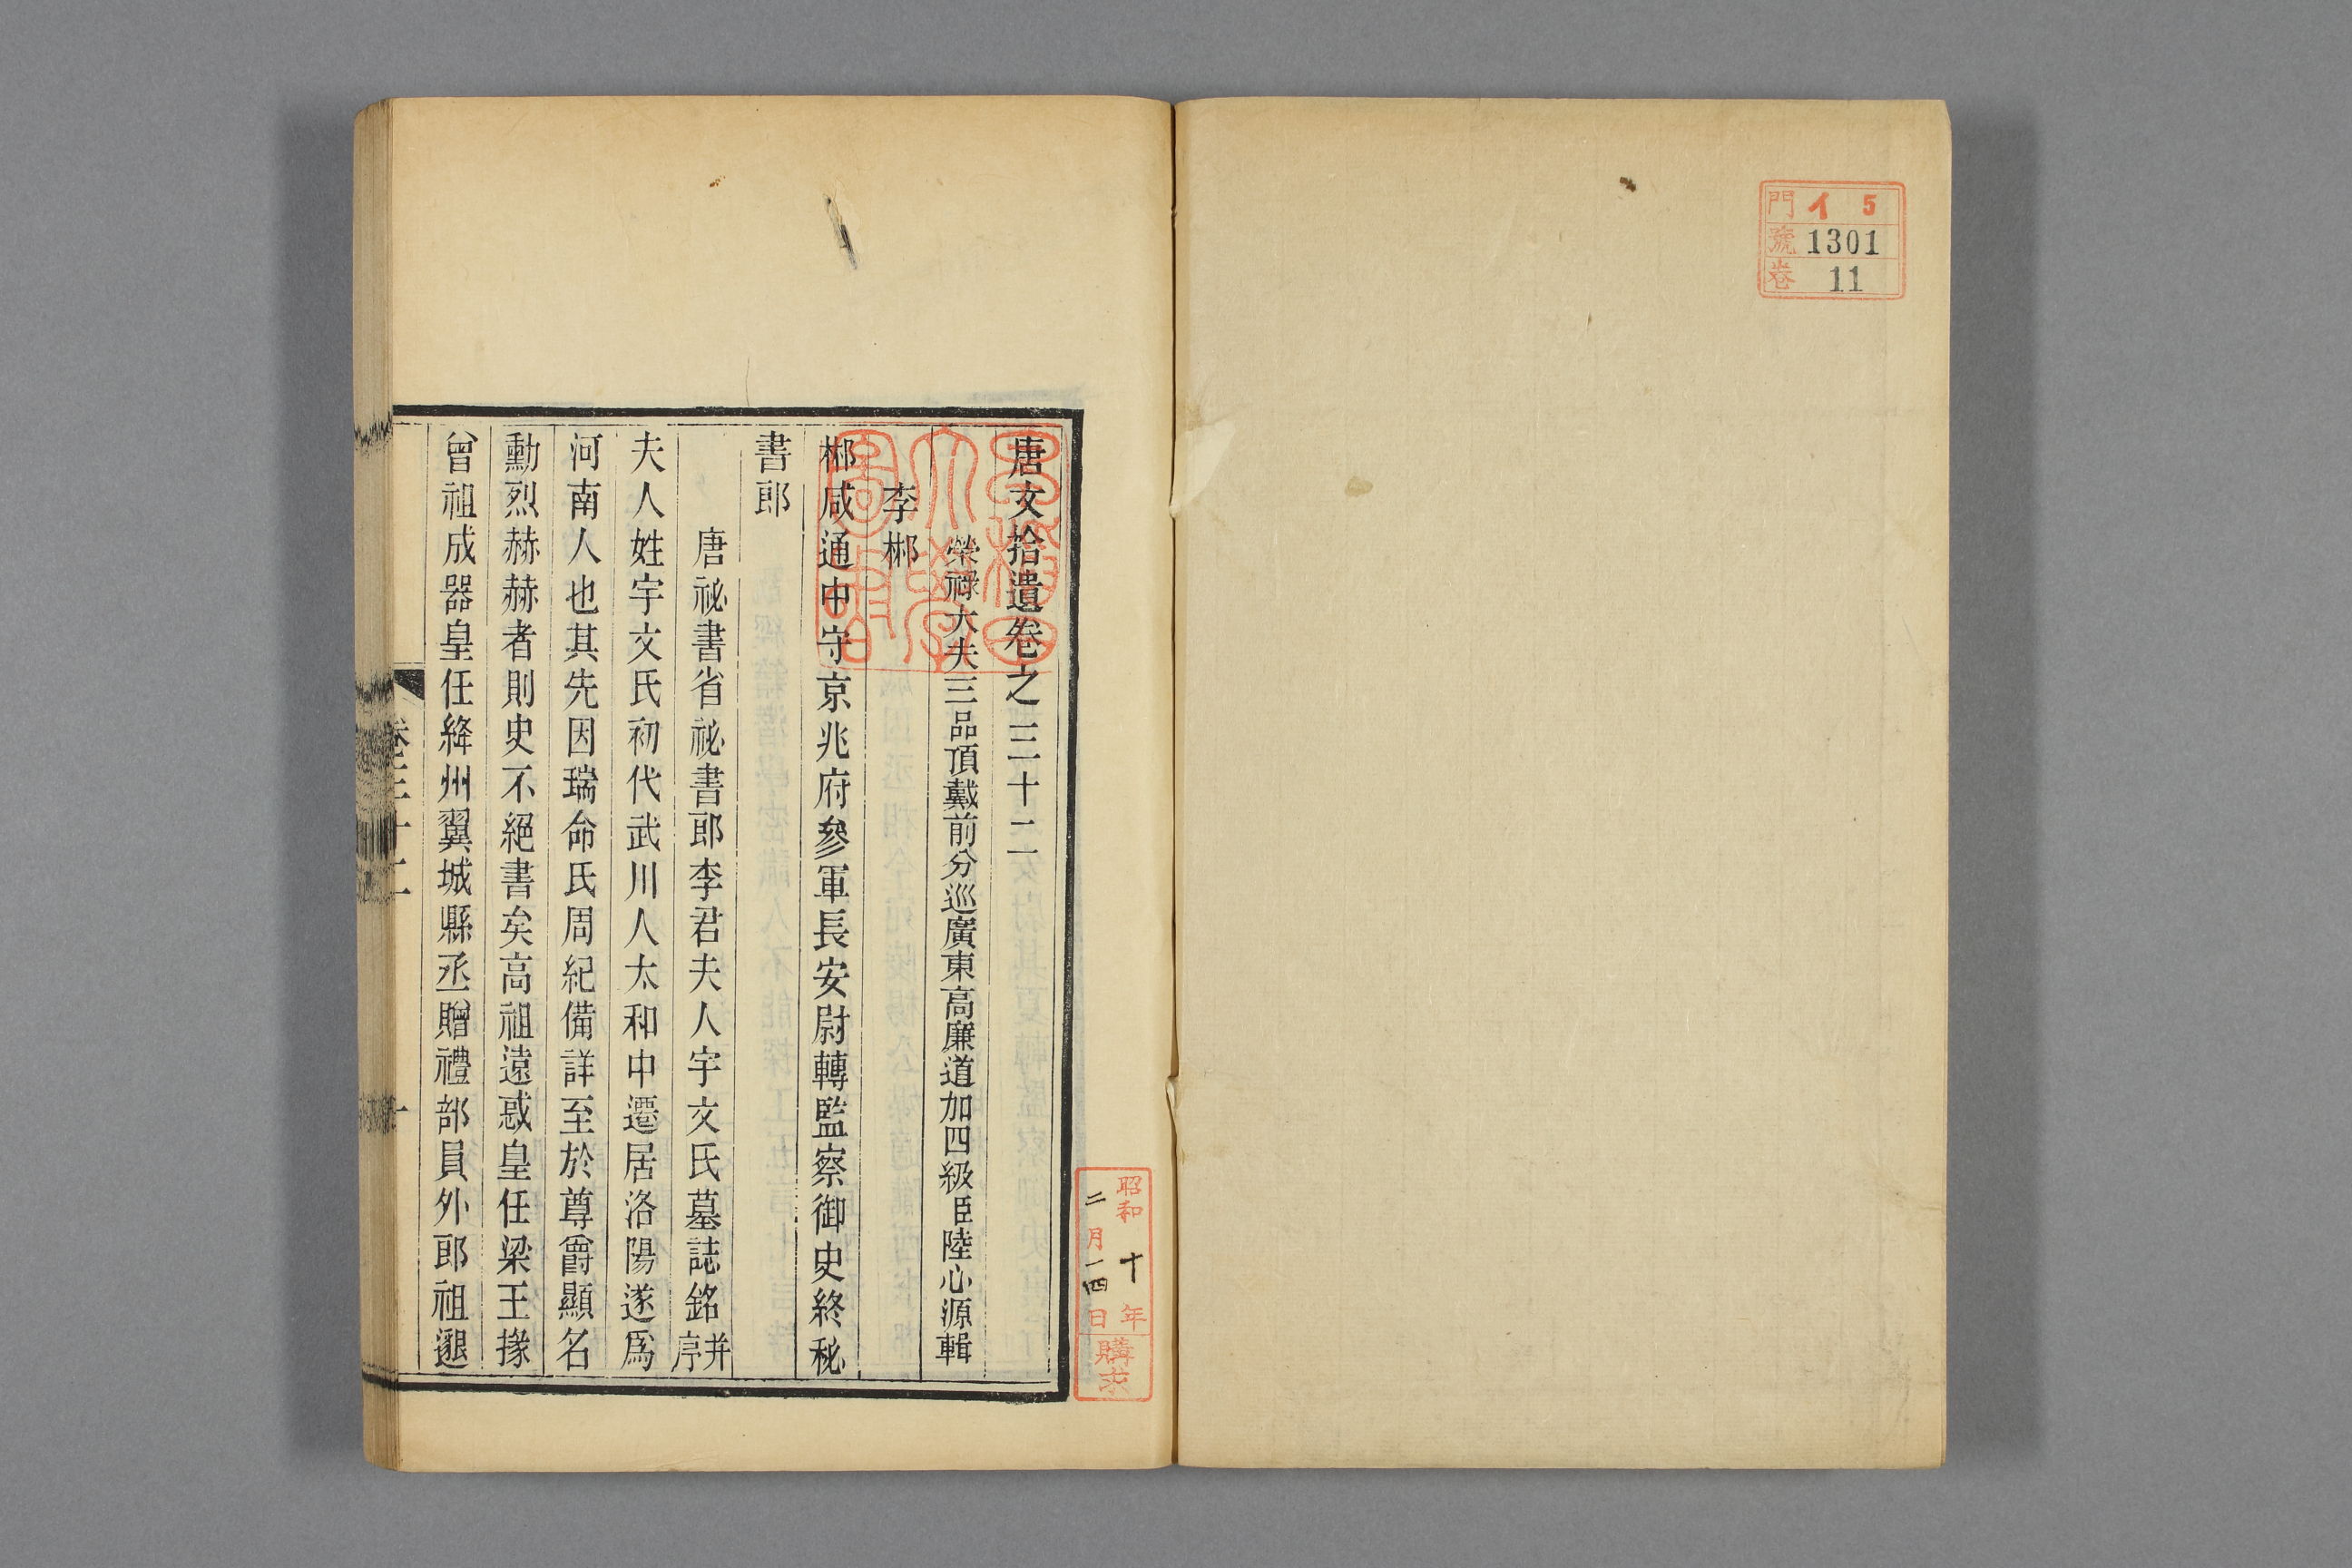 門 イ 5
號 1301
卷 11
唐文拾遺卷之三十二
榮祿大夫三品頂戴前分巡廣東高廉道加四級臣陸心源輯
李郴
郴咸通中守京兆府參軍長安尉轉監察御史終秘
書郎
唐祕書省祕書郎李君夫人宇文氏墓誌銘并序
夫人姓宇文氏初代武川人太和中遷居洛陽遂爲
河南人也其先因瑞命氏周紀備詳至於尊爵顯名
勳烈赫赫者則史不絕書矣高祖遠惑皇任梁王掾
曾祖成器皇任絳州翼城縣丞贈禮部員外郎祖邈
卷三十二
一
早稻田大學圖書
昭和十年
二月一四日
購求